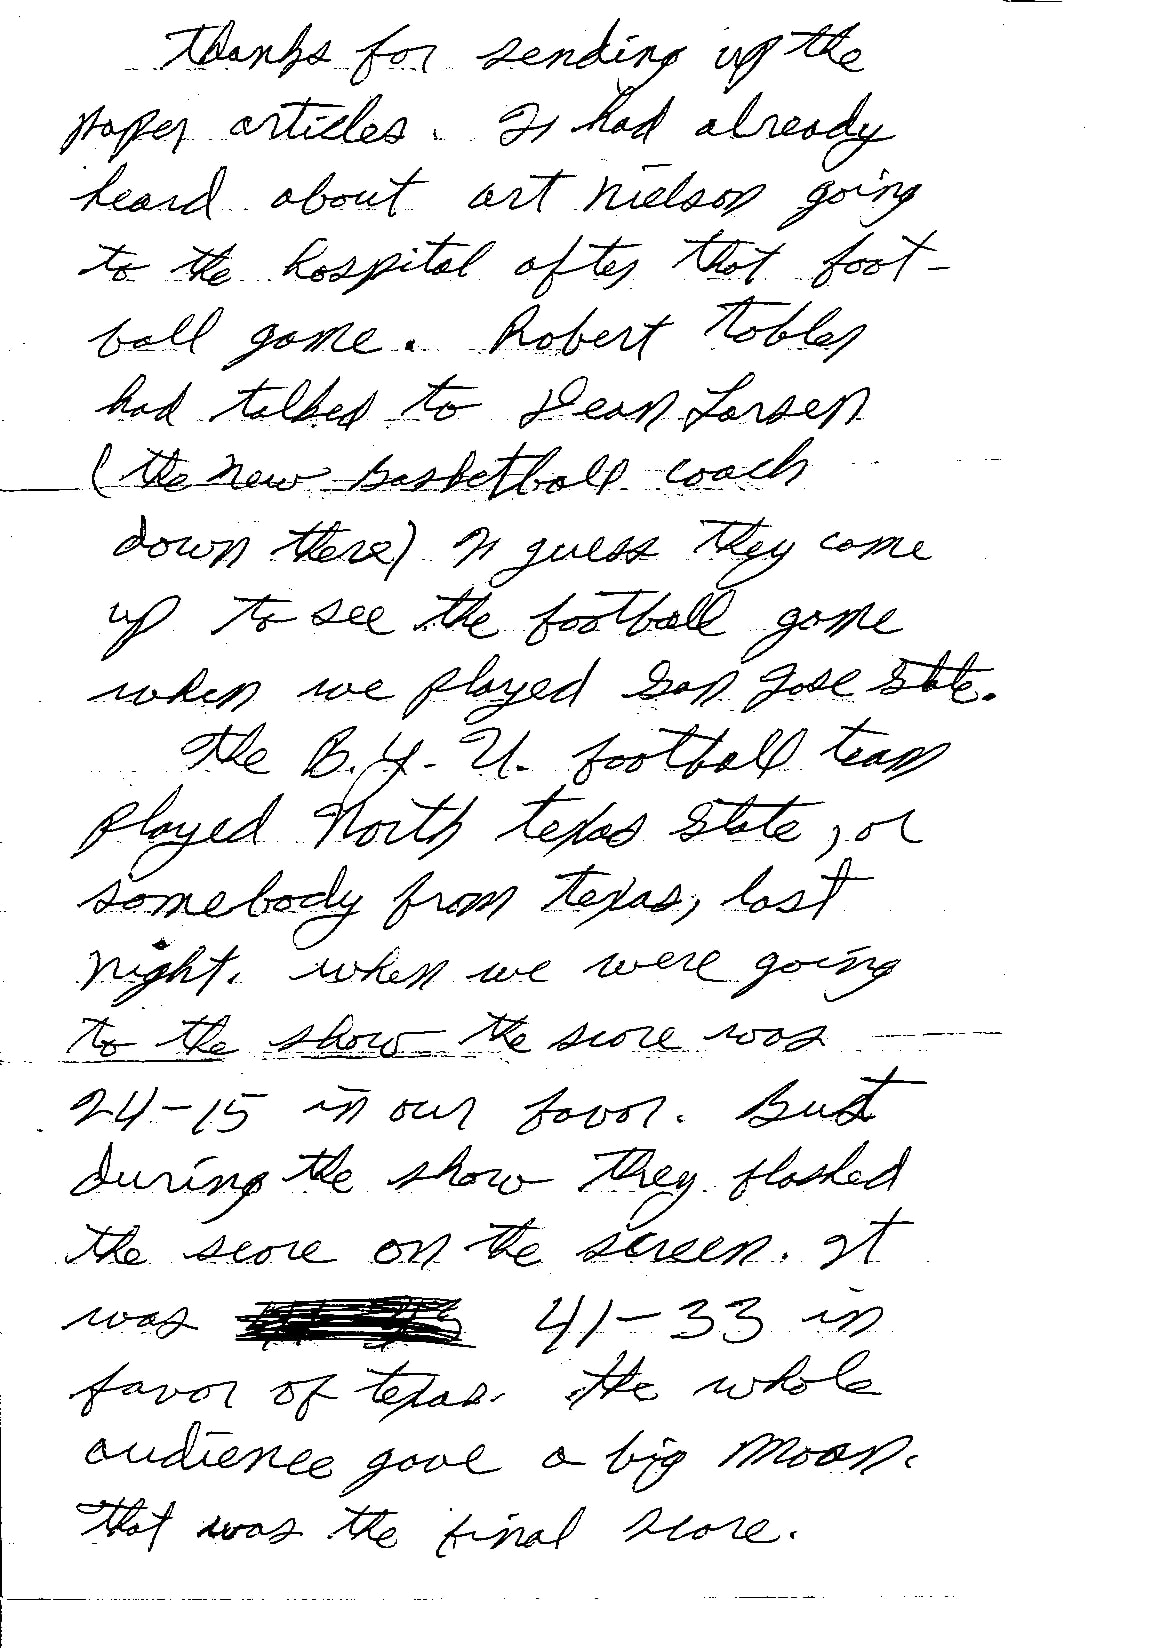 Thanks for sending up the
paper articles. I had already
heard about Art Nielson going
to the hospital after that foot-
ball game. Robert Tobler
had talked to Dean Larsen
(the new Basketball coach
down there) I guess they come
up to see the football game
when we played San Jose State.
The B.Y.U. football team
played North Texas State, or
somebody from Texas, last
night. When we were going
to the show the score was
24-15 in our favor. But
during the show they flashed
the score on the screen. It
was 41-33 in
favor of Texas. The whole
audience gave a big moan.
That was the final score.